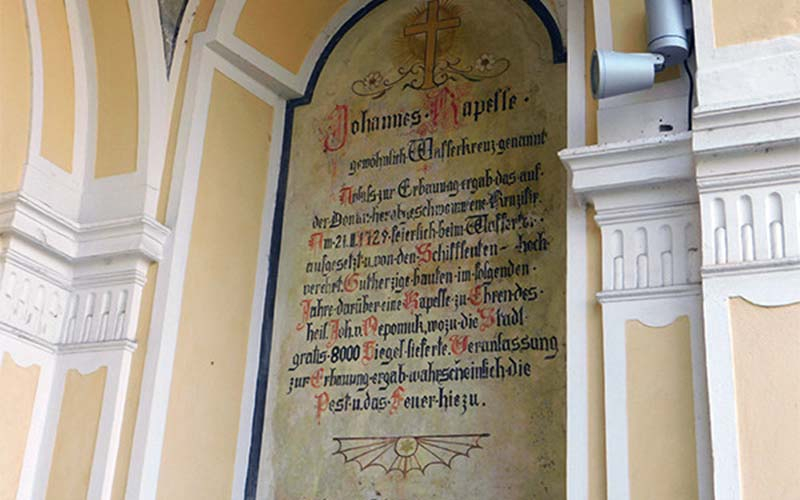 Johannes·Kapelle·
gewöhnlich Wasserkreuz genannt
Anlass zur Erbauung ergab·das·auf·
der Donau herabgeschwommene·Kruzifix·
Am·21.II.1729·feierlich·beim·Wassertor·
aufgesetzt·u.von·den·Schiffleuten – hoch-
verehrt. Gutherzige·bauten·im·folgenden·
Jahre·darüber·eine·Kapelle·zu·Ehren·des·
heil. Joh.v.Nepomuk, wozu·die·Stadt·
gratis·8000·Ziegel·lieferte. Veranlassung·
zur·Erbauung·ergab·wahrscheinlich·die
Pest·u.das·Feuer·hiezu.